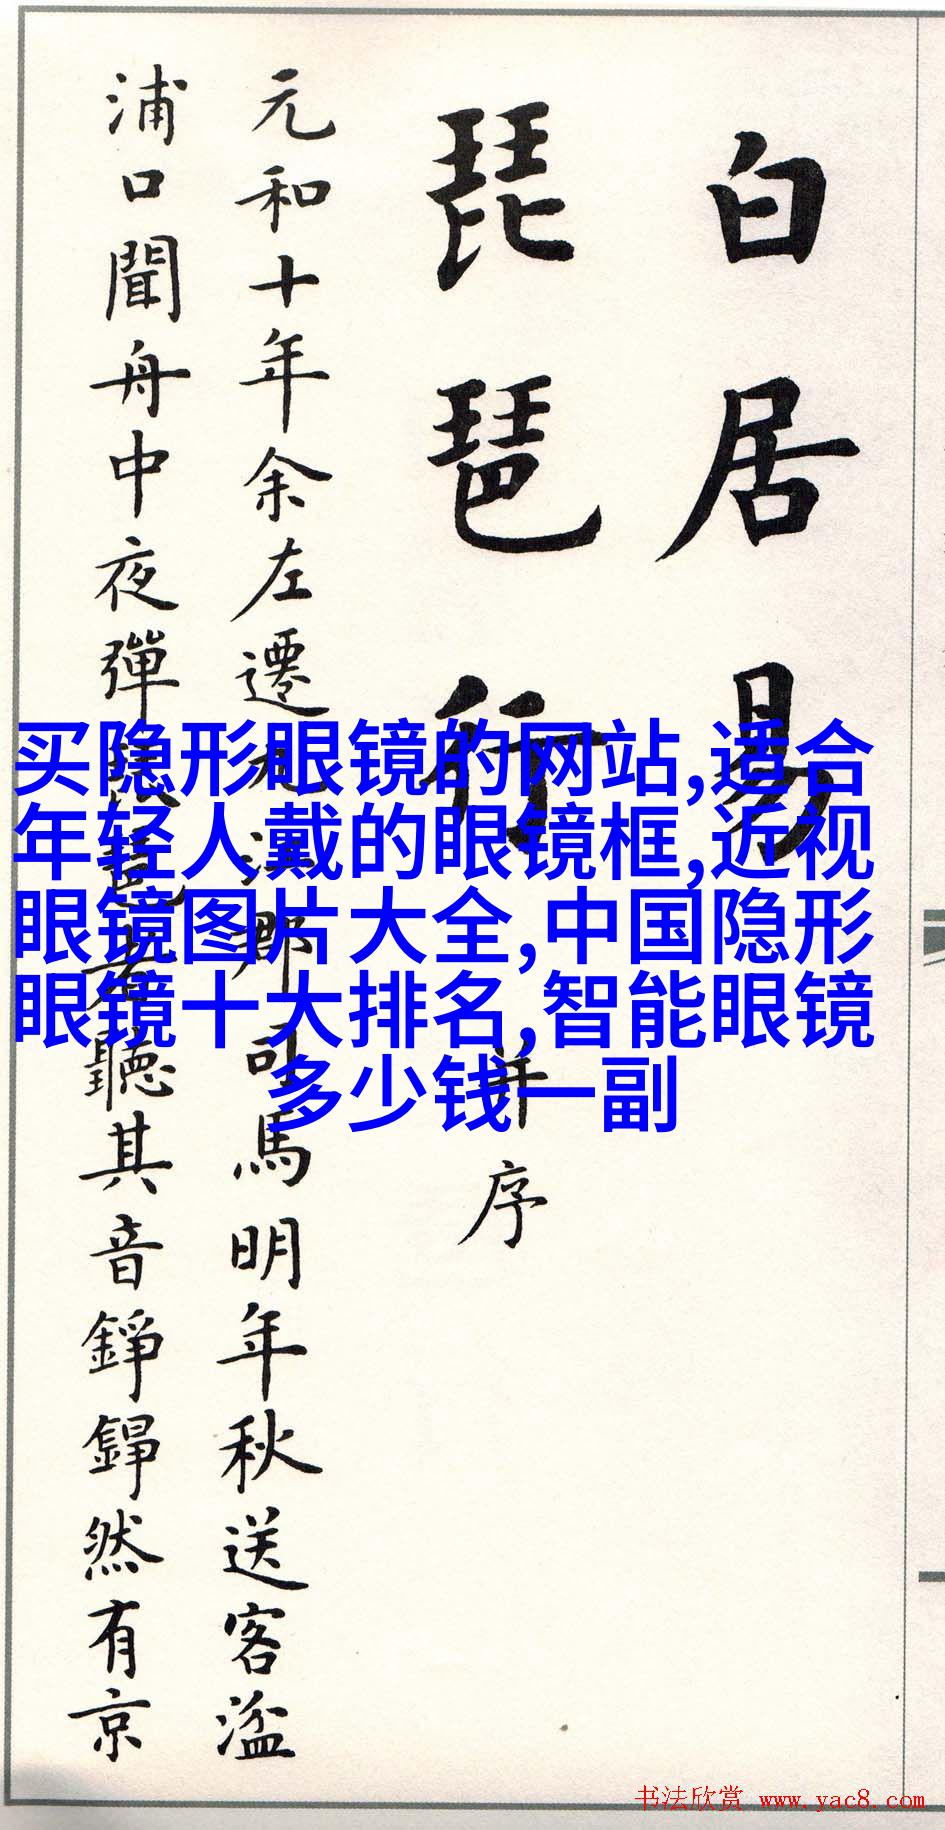 白居易
琵琶行 并序
元和十年余左遷九江郡司馬明年秋送客湓
浦口聞舟中夜彈琵琶者聽其音錚錚然有京
买隐形眼镜的网站,适合
年轻人戴的眼镜框,近视
眼镜图片大全,中国隐形
眼镜十大排名,智能眼镜
多少钱一副
书法欣赏 www.yac8.com